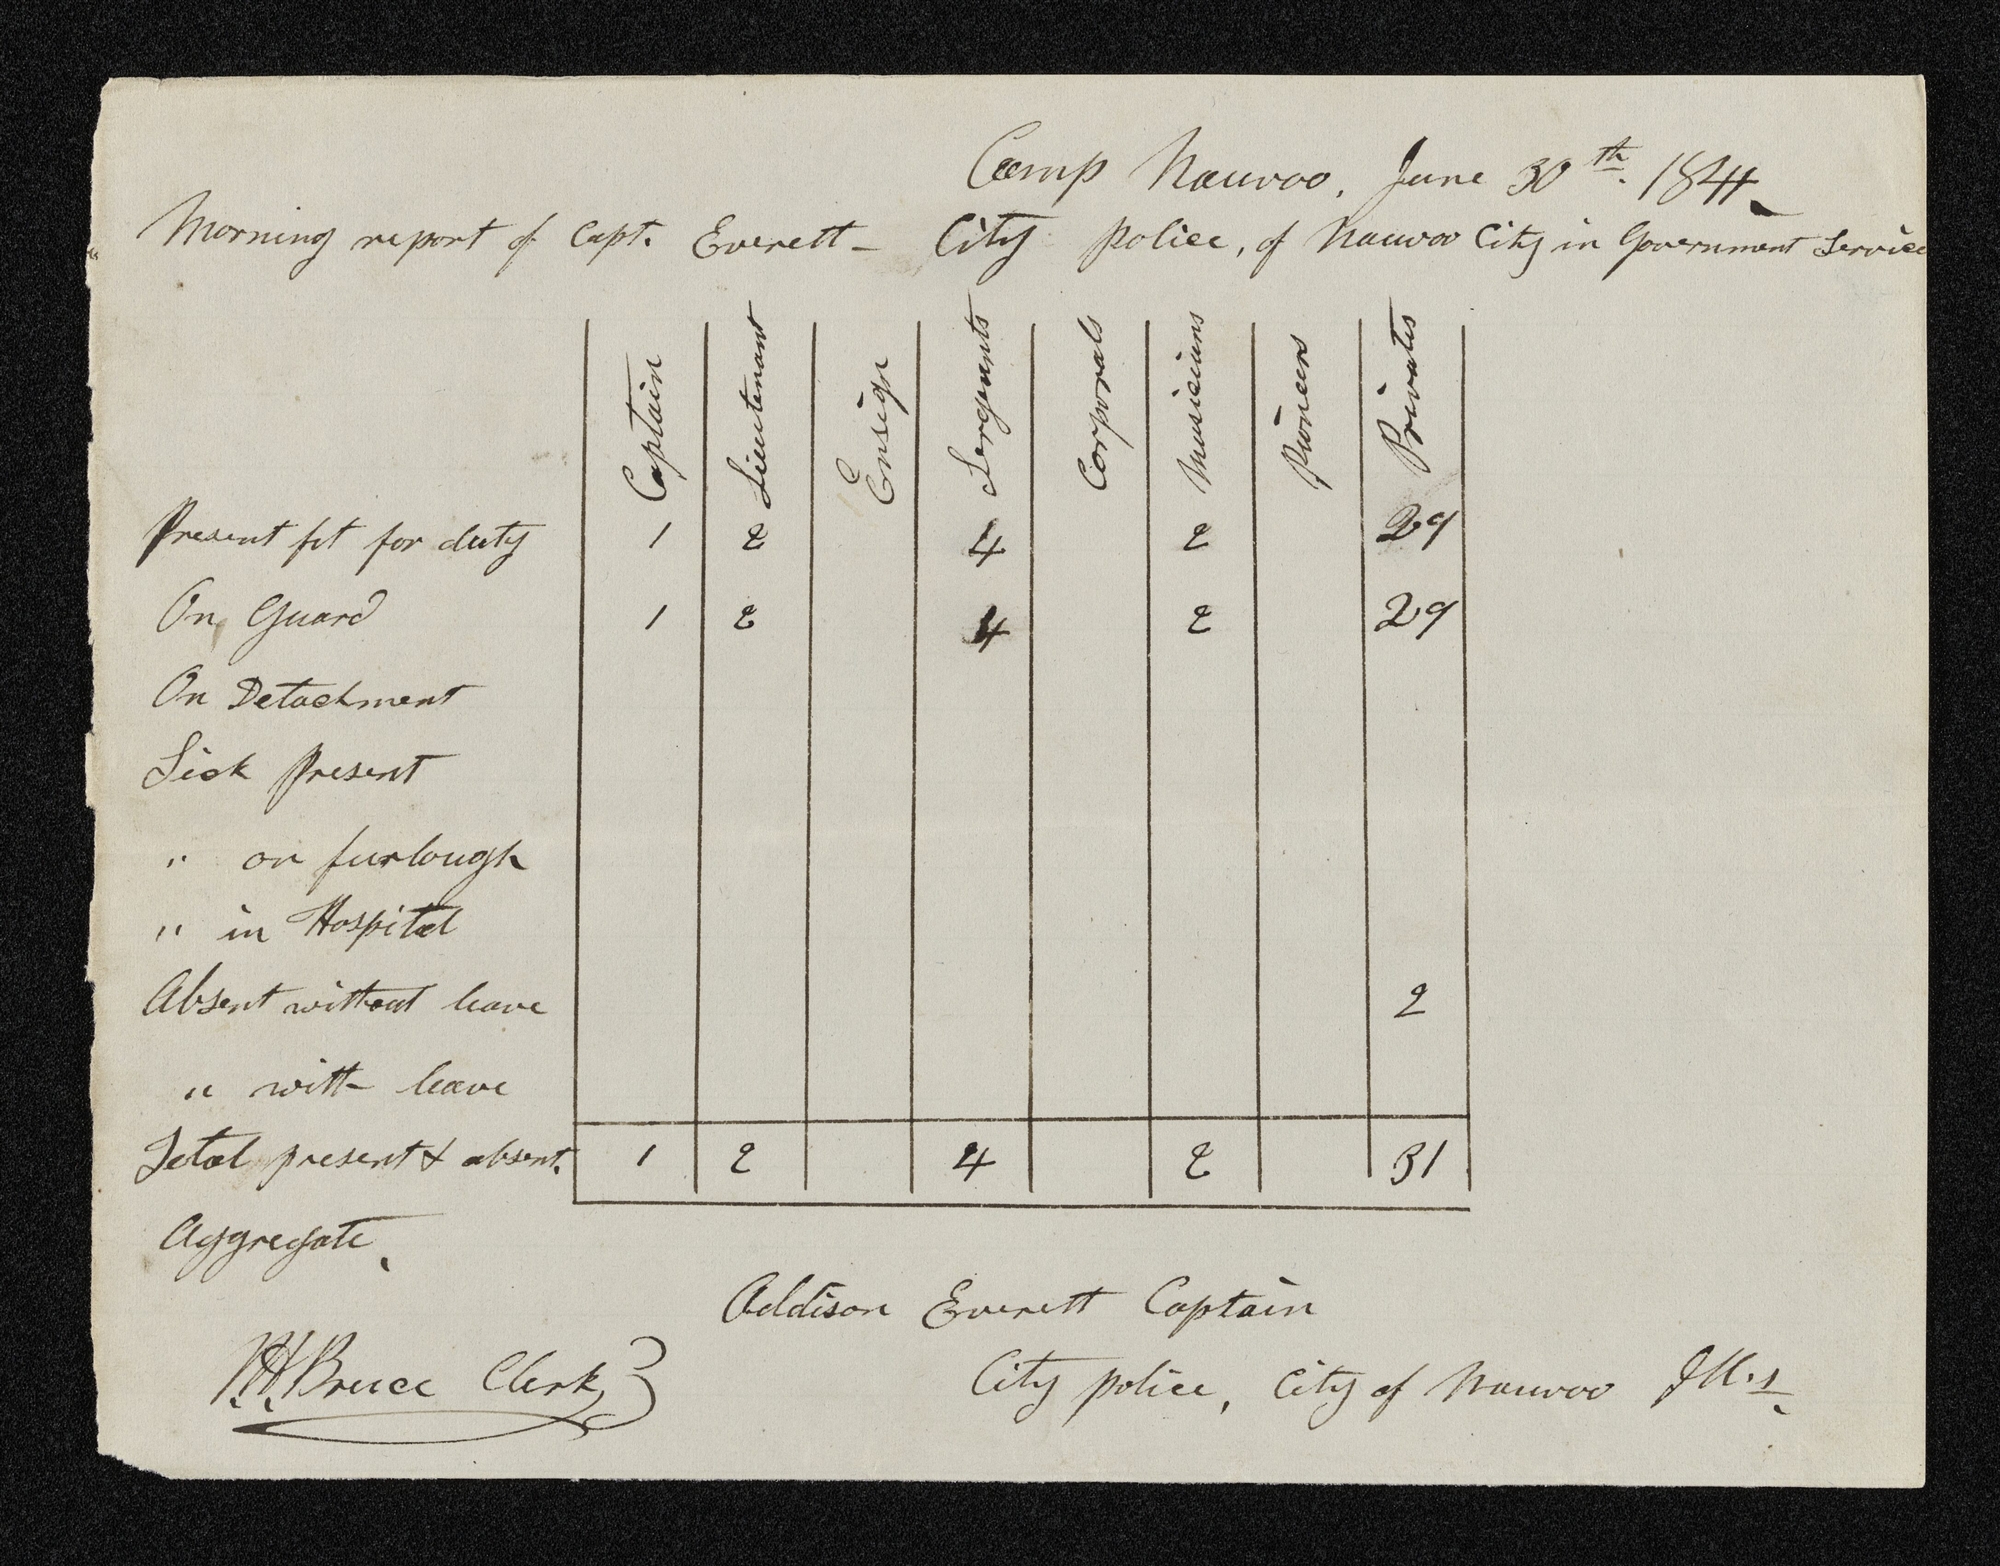 Camp Nauvoo, June 30th. 1844
Morning report of Capt. Everett – City police, of Nauvoo City in Government Service
Captain Lieutenant Ensign Sergeants Corporals Musicians Pioneers Privates
Present fit for duty 1 2 4 2 29
On Guard 1 2 4 2 29
On Detachment
Sick Present
" on furlough
" in Hospital
Absent without leave 2
" with leave
Total present & absent. 1 2 4 2 31
Aggregate
Addison Everett Captain
Bruce Clerk
City police, City of Nauvoo Ill.s